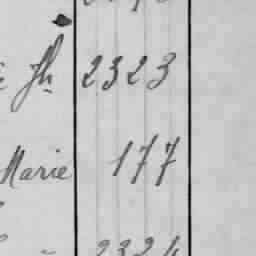 Jh 2323
Marie 177
2324